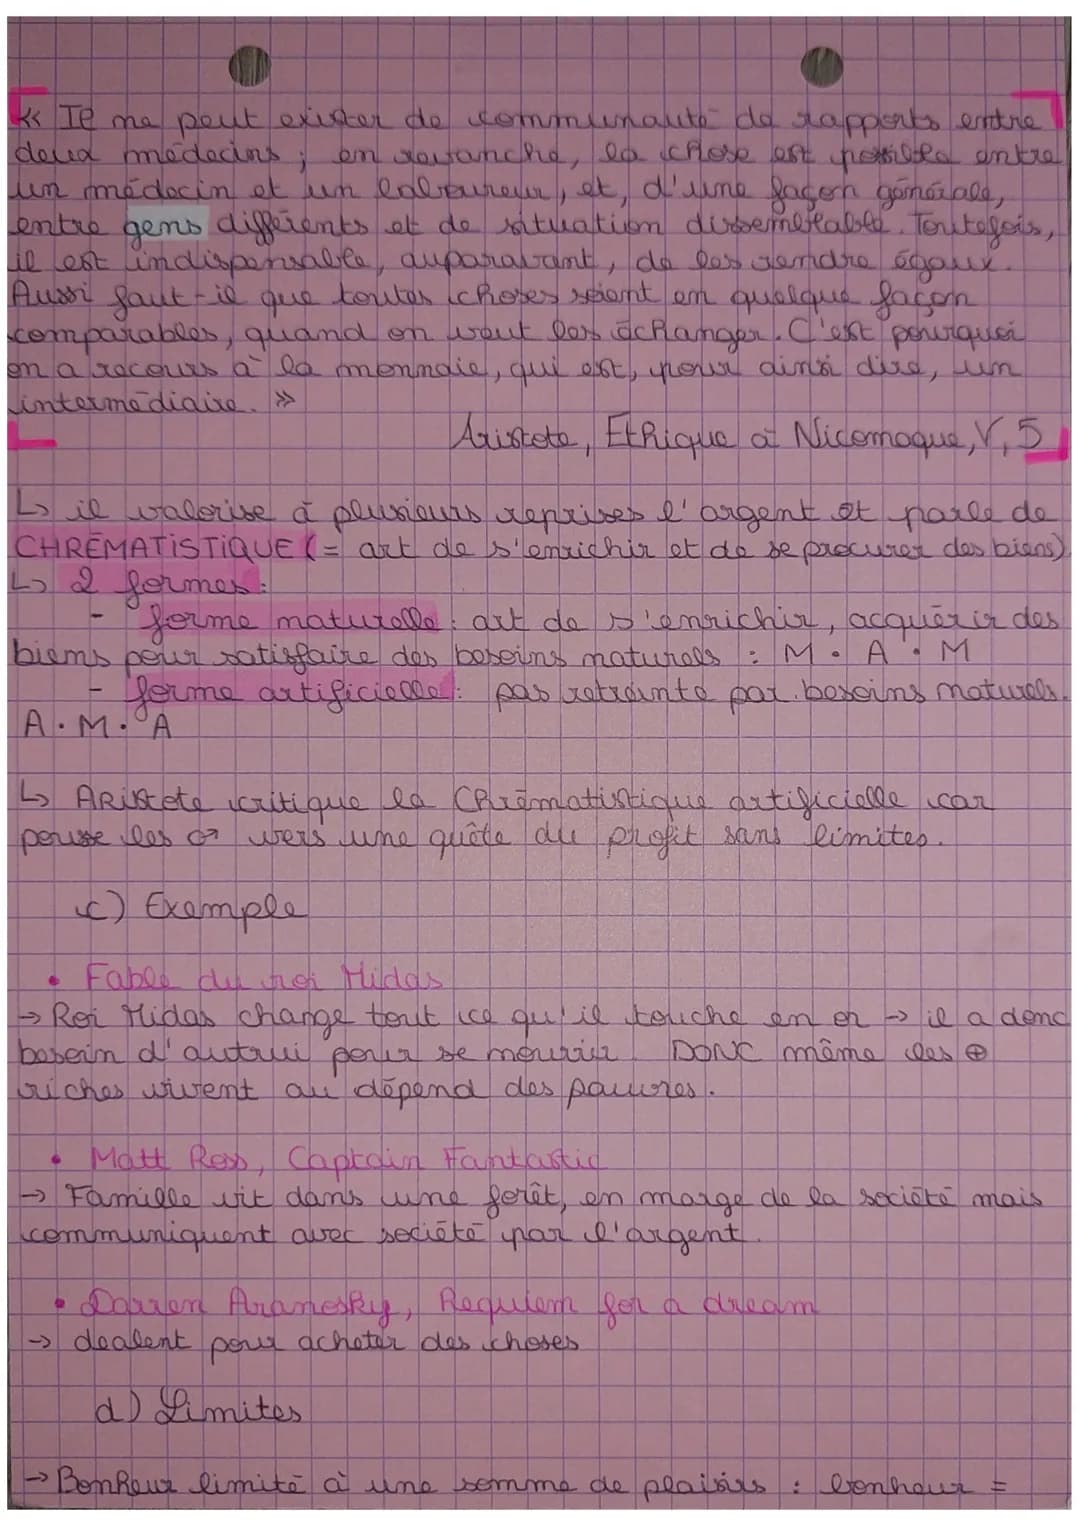 « Il ne peut exister de communauté de rapports entre
deux médecins ; en revanche, la chose est possible entre
un médecin et un laboureur, et, d'une façon générale,
entre gens différents et de situation dissemblable. Toutefois,
il est indispensable, auparavant, de les rendre égaux.
Aussi faut-il que toutes choses soient en quelque façon
comparables, quand on veut les échanger. C'est pourquoi
on a recours à la monnaie, qui est, pour ainsi dire, un
intermédiaire. »
Aristote, Ethique à Nicomaque, V, 5
↳ il valorise à plusieurs reprises l'argent et parle de
CHRÉMATISTIQUE (= art de s'enrichir et de se procurer des biens)
↳ 2 formes :
- forme naturelle : art de s'enrichir, acquérir des
biens pour satisfaire des besoins naturels : M • A • M
- forme artificielle : pas retrainte par besoins naturels.
A • M • A
↳ Aristote critique la Chrématistique artificielle car
pousse les ♂ vers une quête du profit sans limites.
c) Exemple
• Fable du roi Midas
→ Roi Midas change tout ce qu'il touche en or → il a donc
besoin d'autrui pour se nourrir. DONC même les ⊕
riches vivent au dépend des pauvres.
• Matt Ross, Captain Fantastic
→ Famille vit dans une forêt, en marge de la société mais
communiquent avec société par l'argent.
• Darren Aranosky, Requiem for a dream
→ dealent pour acheter des choses
d) Limites
→ Bonheur limité à une somme de plaisirs : bonheur =